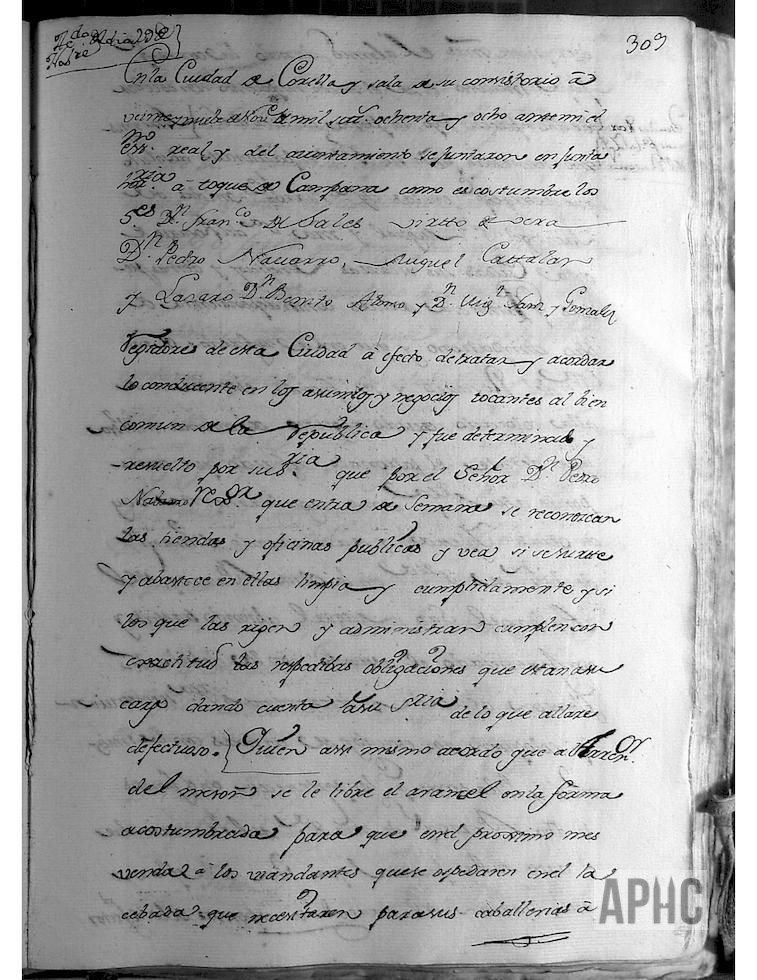 Ydo de dia 29 de
Nobre
309
En la Ciudad de Corella y sala de su consistorio â
veinte y nuebe de Nove de mil set. ochenta y ocho ante mi el
essno real y del aiuntamiento se juntaron en junta
hor.ria â toque de Campana como es costumbre los
Ses Dn Franco de Sales Virtto de Vera
Dn Pedro Navarro, Miguel Cattalan
y Lazaro Dn Benito Alonso y Dn Migl Sanz y Gonzalez
Regidores de esta Ciudad a efecto de tratar y acordar
lo conducente en los asuntos y negocios tocantes al bien
comun de la Republica y fue determinado y
resuelto por su Sria que por el Señor Dn Pedro
Nabarro Rdor que entra de Semana se reconozcan
las tiendas y oficinas publicas y vea si se surte
y abastece en ellas limpia y cumplidamente y si
los que las rigen y administran cumplen con
exactitud las respectibas obligaciones que estan a su
cargo dando cuenta a su Sria de lo que allare
defectuoso. Otrosi assi mismo acordo que al Arrenor
del meson se le libre el arancel en la forma
acostumbrada para que en el proximo mes
venda â los viandantes que se ospedaren en el la
cebada que necesitaren para sus caballerias â
APHC